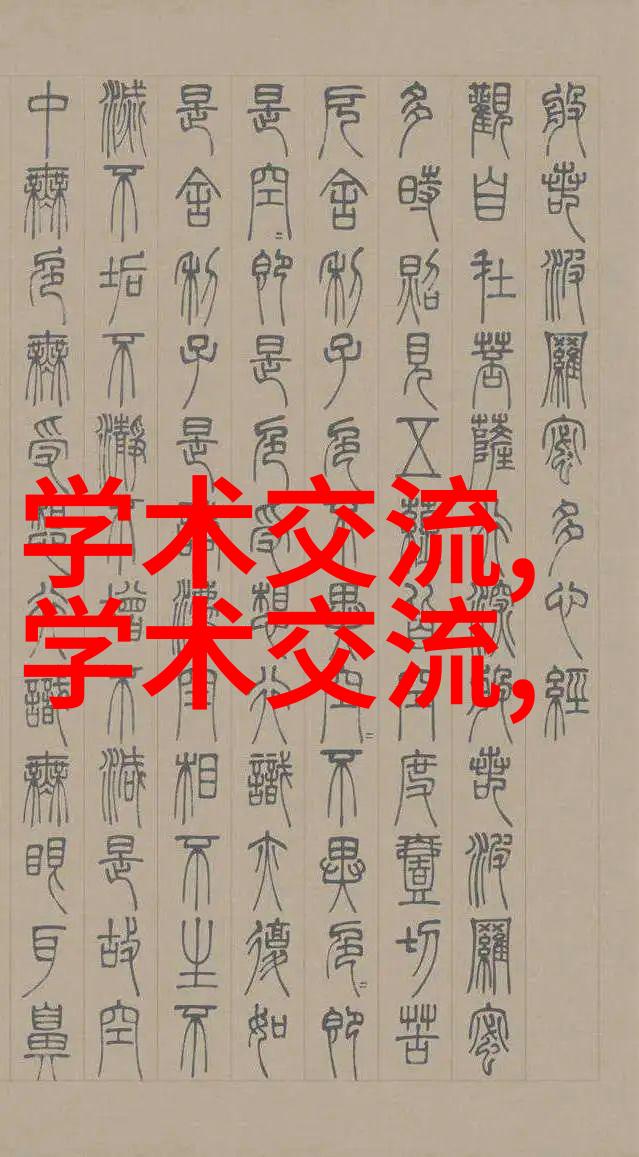 般若波羅蜜多心經
觀自在菩薩行深般若波羅蜜
多時照見五蘊皆空度壹切苦
厄舍利子色不異空〻不異色〻即
是空〻即是色受想行識亦復如
是舍利子是諸法空相不生不
滅不垢不瀞不增不減是故空
中無色無受想行識無眼耳鼻
学术交流,
学术交流,